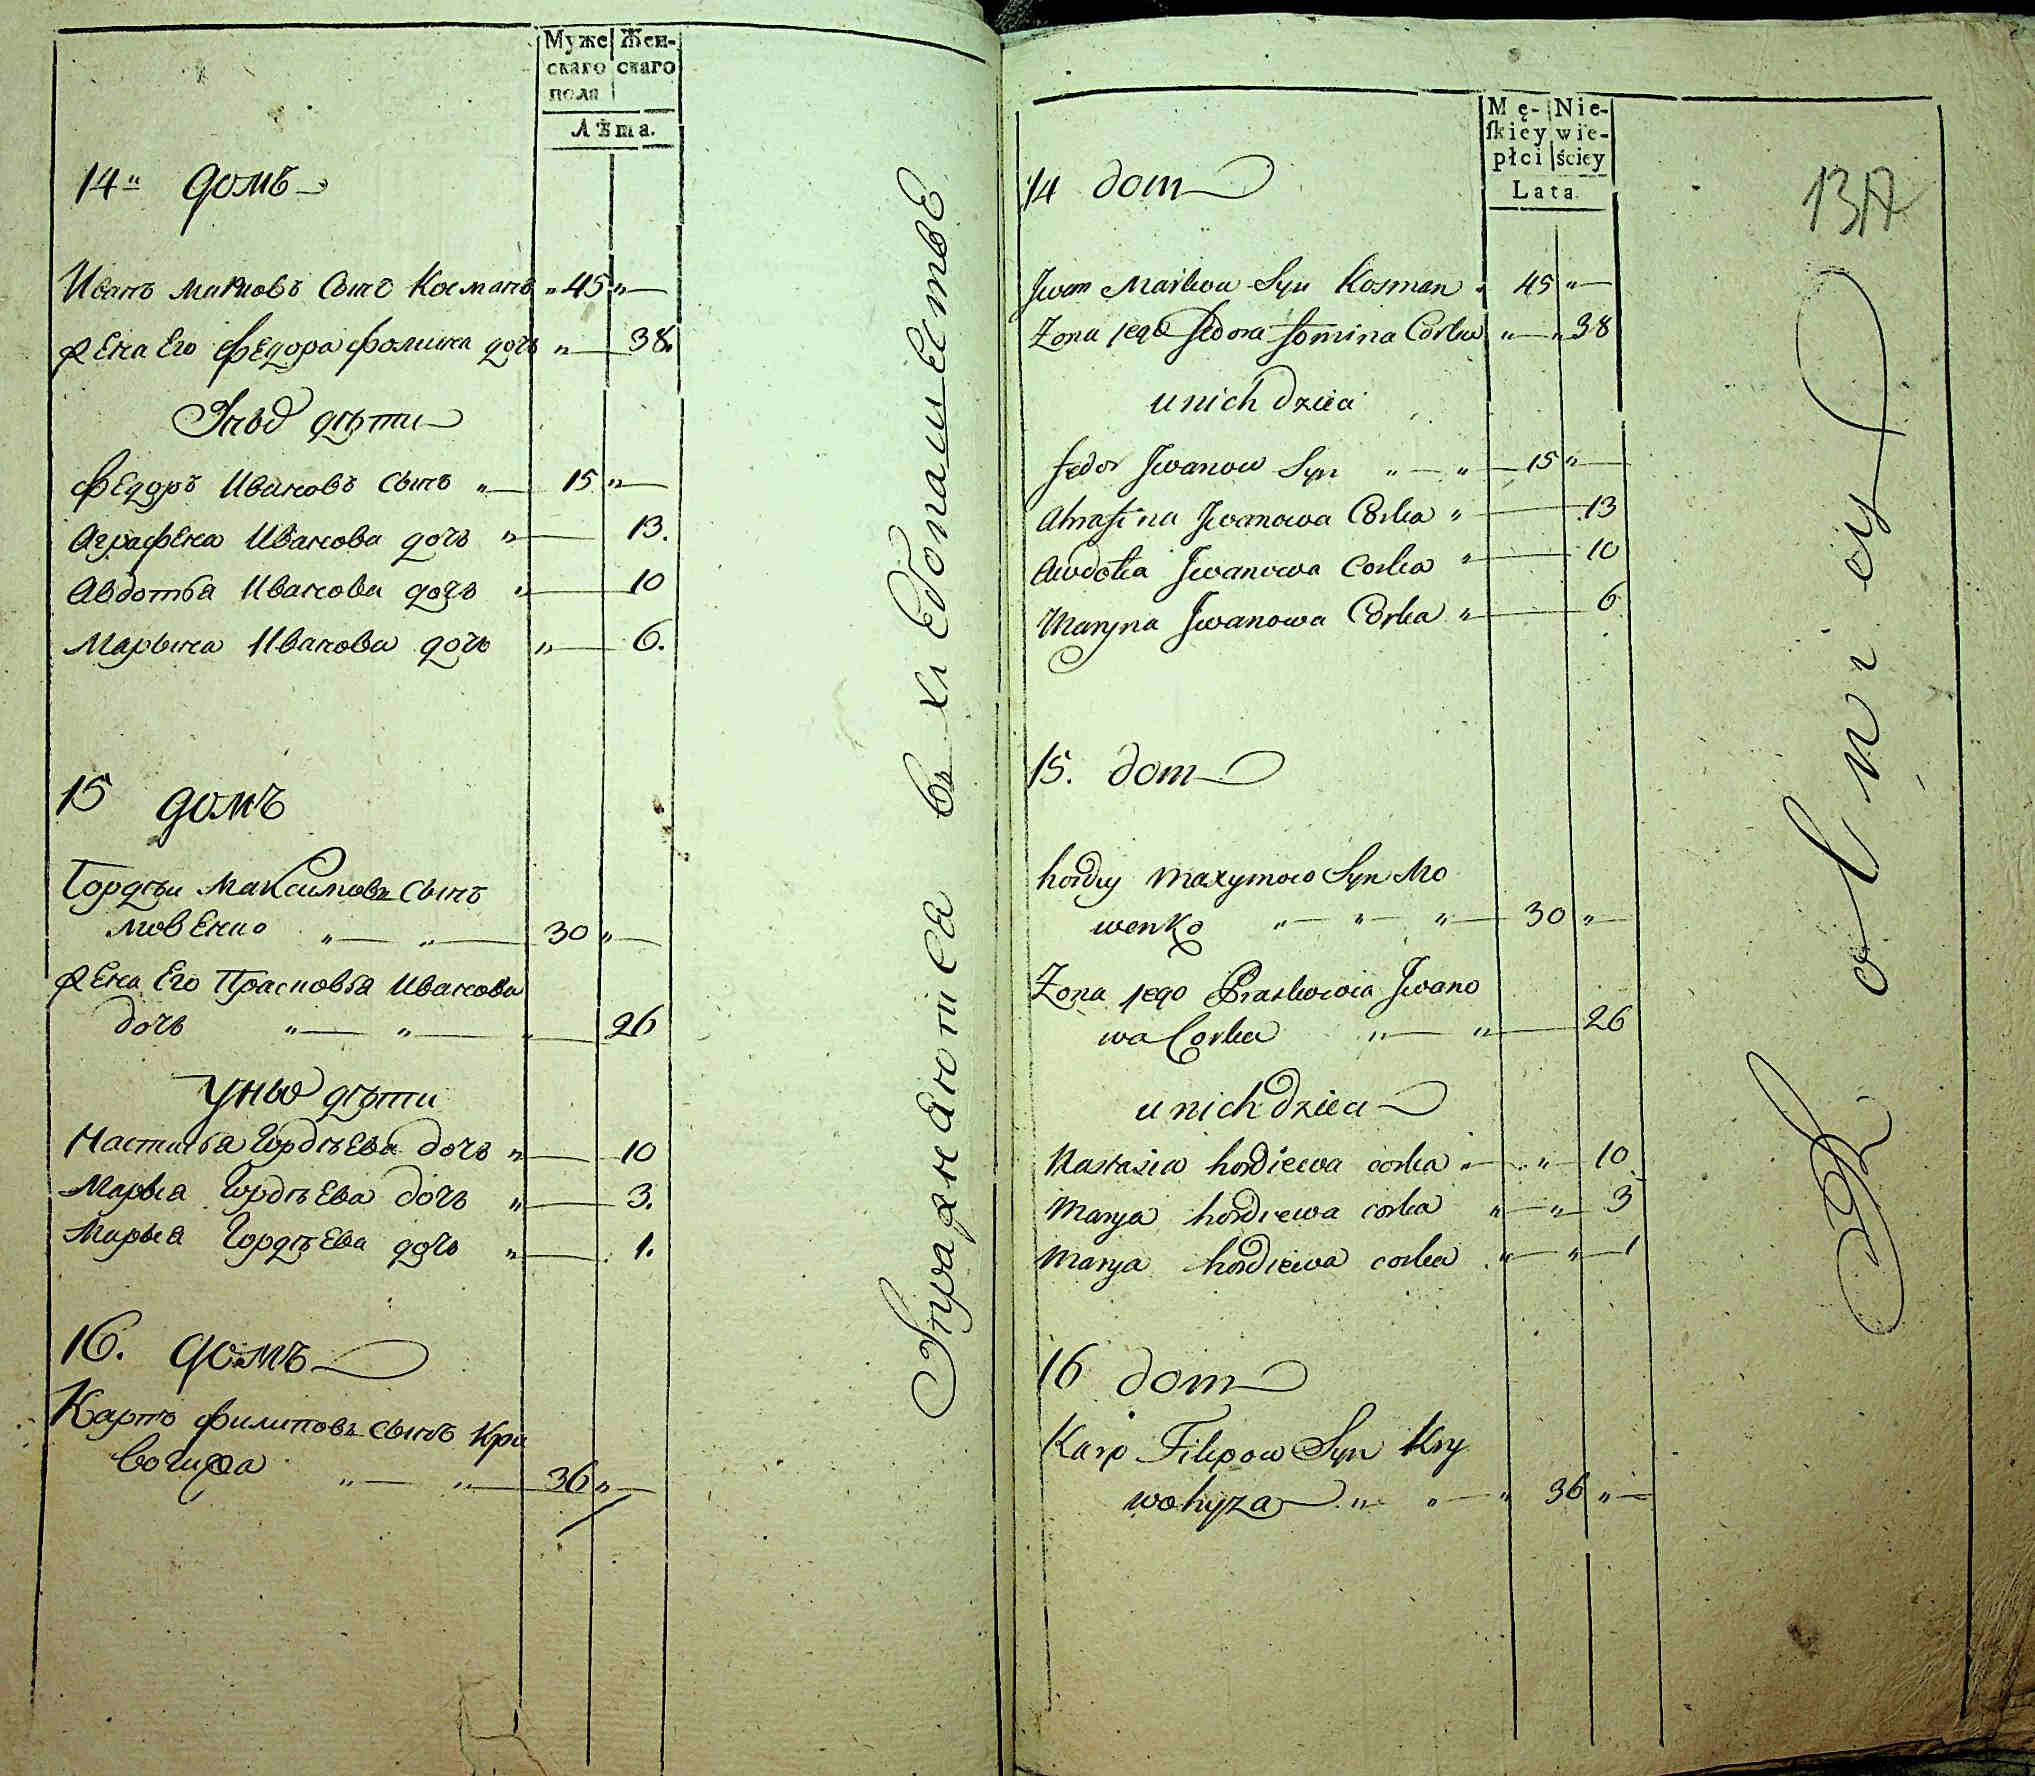 Муже Жен-
скаго скаго
поля
Лѣта.
14 домъ
Иванъ Марковъ Сынъ Косманъ „ 45 „
Жена Его Федора Фомина дочь „ 38.
У нихъ дѣти
Федоръ Ивановъ сынъ „ 15 „
Аграфена Иванова дочь „ 13.
Авдотья Иванова дочь „ 10
Марына Иванова дочь „ 6.
15 домъ
Гордѣи Максимовъ сынъ
Мовенко „ „ 30 „
Жена Его Прасковья Иванова
дочь „ „ 26
У нихъ дѣти
Настасья Гордѣева дочь „ 10
Марья Гордѣева дочь „ 3.
Марья Гордѣева дочь „ 1.
16. домъ
Карпъ Филиповъ сынъ Кри
вогижа „ „ 36 „
Упражняются въ хлебопашестве
Mę- Nie-
ſkiey wie-
płci ściey
Lata.
13A
14 dom
Jwan Markow Syn Kosman „ 45 „
Zona jego Fedora Fomina Corka „ „ 38
u nich dzieci
Fedor Jwanow Syn „ „ 15 „
Ahrafina Jwanowa Corka „ 13
Awdotia Jwanowa Corka „ 10
Maryna Jwanowa Corka „ 6
15. dom
hordiy Maxymow Syn Mo
wenko „ „ „ 30 „
Zona jego Praskowia Jwano
wa Corka „ „ 26
u nich dzieci
Nastasia hordiewa corka „ „ 10
Marya hordiewa corka „ „ 3
Marya hordiewa corka „ „ 1
16 dom
Karp Filipow Syn Kry
wohyza „ „ „ 36 „
Rolnicy